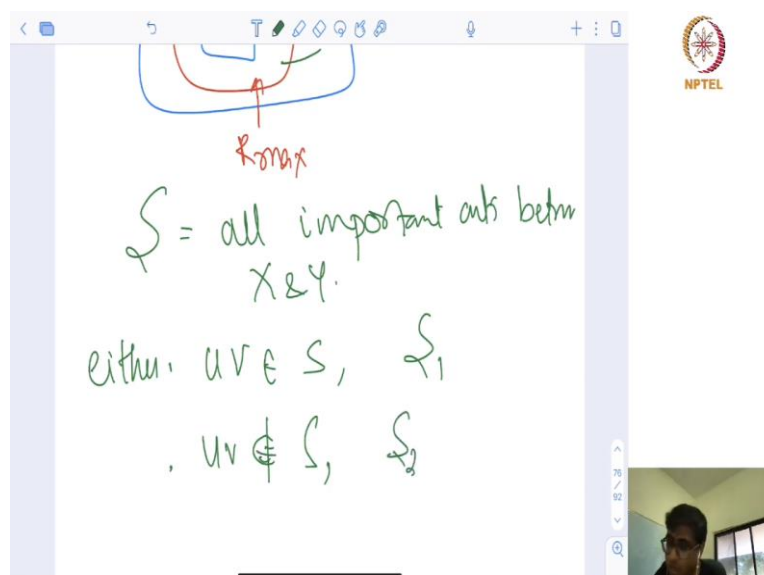 NPTEL
Rmax
S = all important cuts betw
X & Y.
either. uv ∈ S, S1
. uv ∉ S, S2
76
/
92